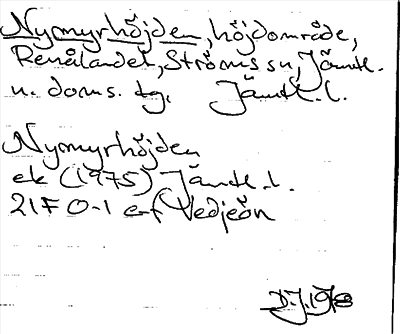 Nymyrhöjden, höjdområde,
Renålandet, Ströms sn, Jämtl.
n. doms. tg. Jämtl. l.
Nymyrhöjden
ek (1975) Jämtl. l.
21F 0-1 ef Vedjeön
D.J. 1978